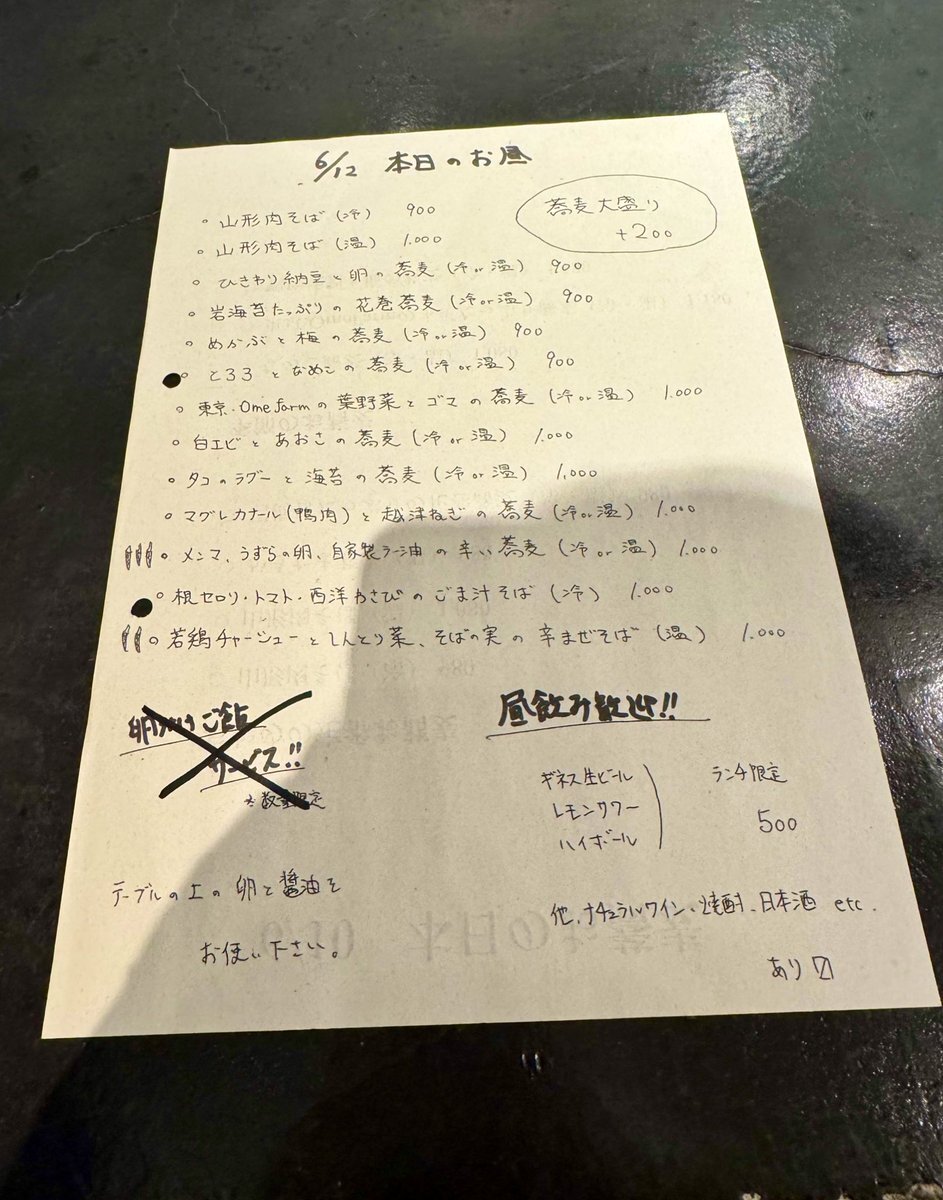 6/12 本日のお昼
蕎麦大盛り
+200
。山形肉そば (冷) 900
。山形肉そば (温) 1.000
。ひきわり納豆と卵の蕎麦 (冷or温) 900
。岩海苔たっぷりの花巻蕎麦 (冷or温) 900
。めかぶと梅の蕎麦 (冷or温) 900
。とろろとなめこの蕎麦 (冷or温) 900
。東京・Ome farmの葉野菜とゴマの蕎麦 (冷or温) 1.000
。白エビとあおさの蕎麦 (冷or温) 1.000
。タコのラグーと海苔の蕎麦 (冷or温) 1,000
。マグレカナール(鴨肉)と越津ねぎの蕎麦 (冷or温) 1.000
。メンマ、うずらの卵、自家製ラー油の辛い蕎麦 (冷or温) 1.000
。根セロリ・トマト・西洋わさびのごま汁そば (冷) 1.000
。若鶏チャーシューとしんとり菜、そばの実の辛まぜそば (温) 1.000
卵かけご飯
サービス!!
※数量限定
テーブルの上の卵と醤油を
お使い下さい。
昼飲み歓迎!!
ギネス生ビール
レモンサワー
ハイボール
ランチ限定
500
他、ナチュラルワイン、焼酎、日本酒 etc.
あり〼